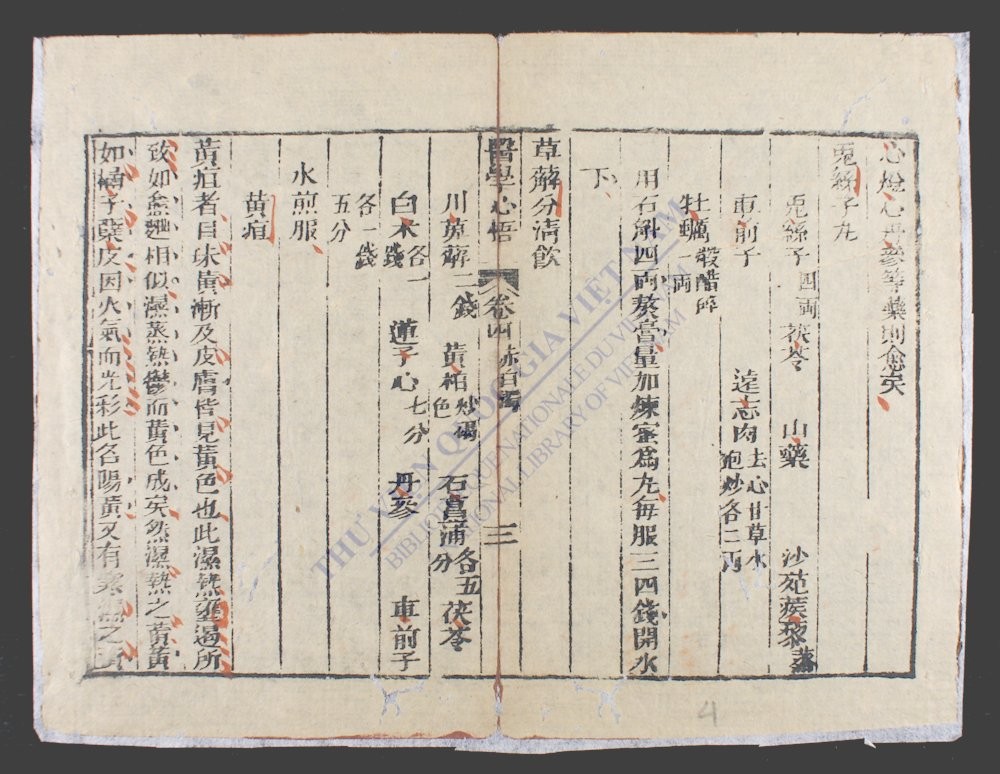 心燈心丹參等藥則愈矣
兎絲子丸
兎絲子四両茯苓 山藥 沙苑蒺藜蒸
車前子 遠志肉去心甘草水泡炒各二両
牡蠣煅醋淬一両
用石斛四両熬膏量加煉蜜爲丸每服三四錢開水
下
萆薢分清飲
醫學心悟 卷四 赤白濁 三
川萆薢二錢 黃栢炒褐色 石菖蒲各五分 茯苓
白术各一錢 蓮子心七分 丹參 車前子
各一錢五分
水煎服
黃疸
黃疸者目珠黃漸及皮膚皆見黃色也此濕熱壅遏所
致如盦麯相似濕蒸熱鬱而黃色成矣然濕熱之黃黃
如橘子蘗皮因火氣而光彩此名陽黃又有寒濕之黃
THƯ VIỆN QUỐC GIA VIỆT NAM
BIBLIOTHEQUE NATIONALE DU VIETNAM
NATIONAL LIBRARY OF VIETNAM
4